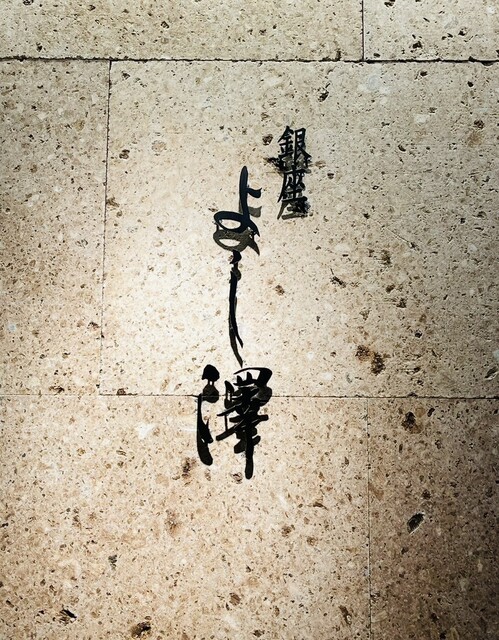 銀座
よし澤